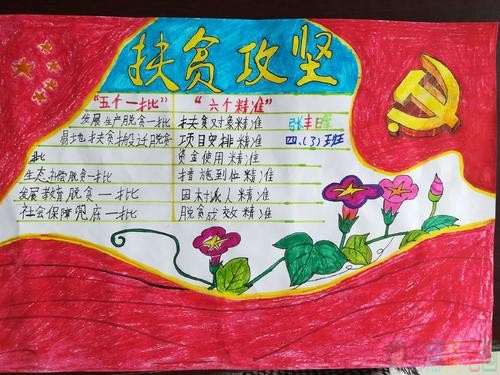 扶贫攻坚
"五个一批" "六个精准"
发展生产脱贫一批 扶贫对象精准
易地扶贫搬迁脱贫 项目安排精准
一批 资金使用精准
生态补偿脱贫一批 措施到位精准
发展教育脱贫一批 因村派人精准
社会保障兜底一批 脱贫成效精准
四、(3)班